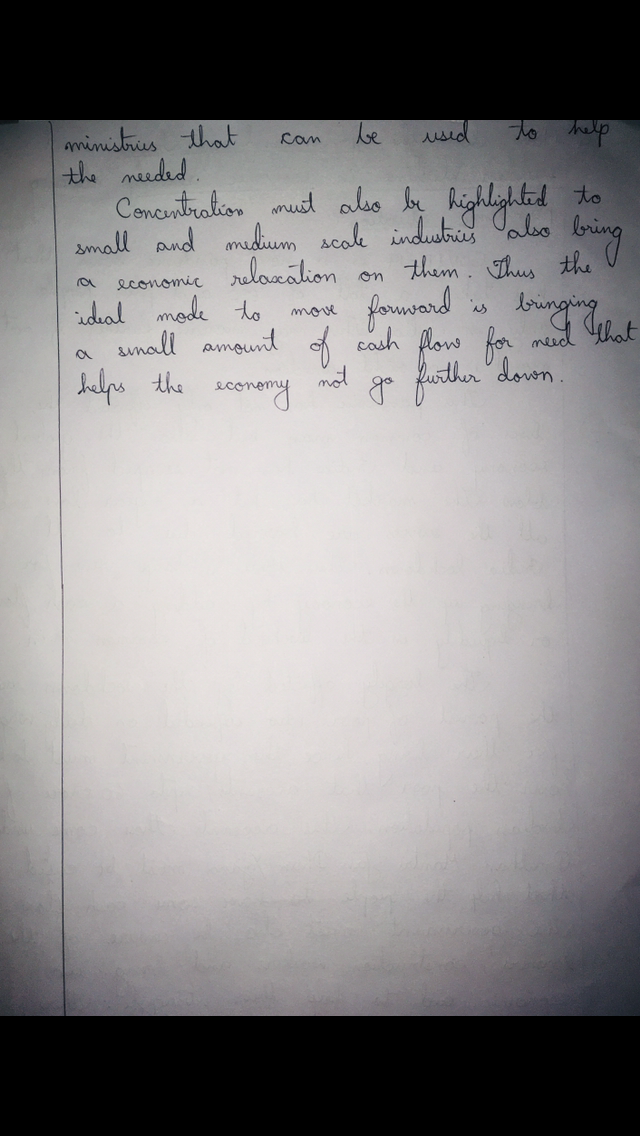 ministries that can be used to help
the needed.
Concentration must also be highlighted to
small and medium scale industries also bring
a economic relaxation on them. Thus the
ideal mode to move forward is bringing
a small amount of cash flow for need that
helps the economy not go further down.